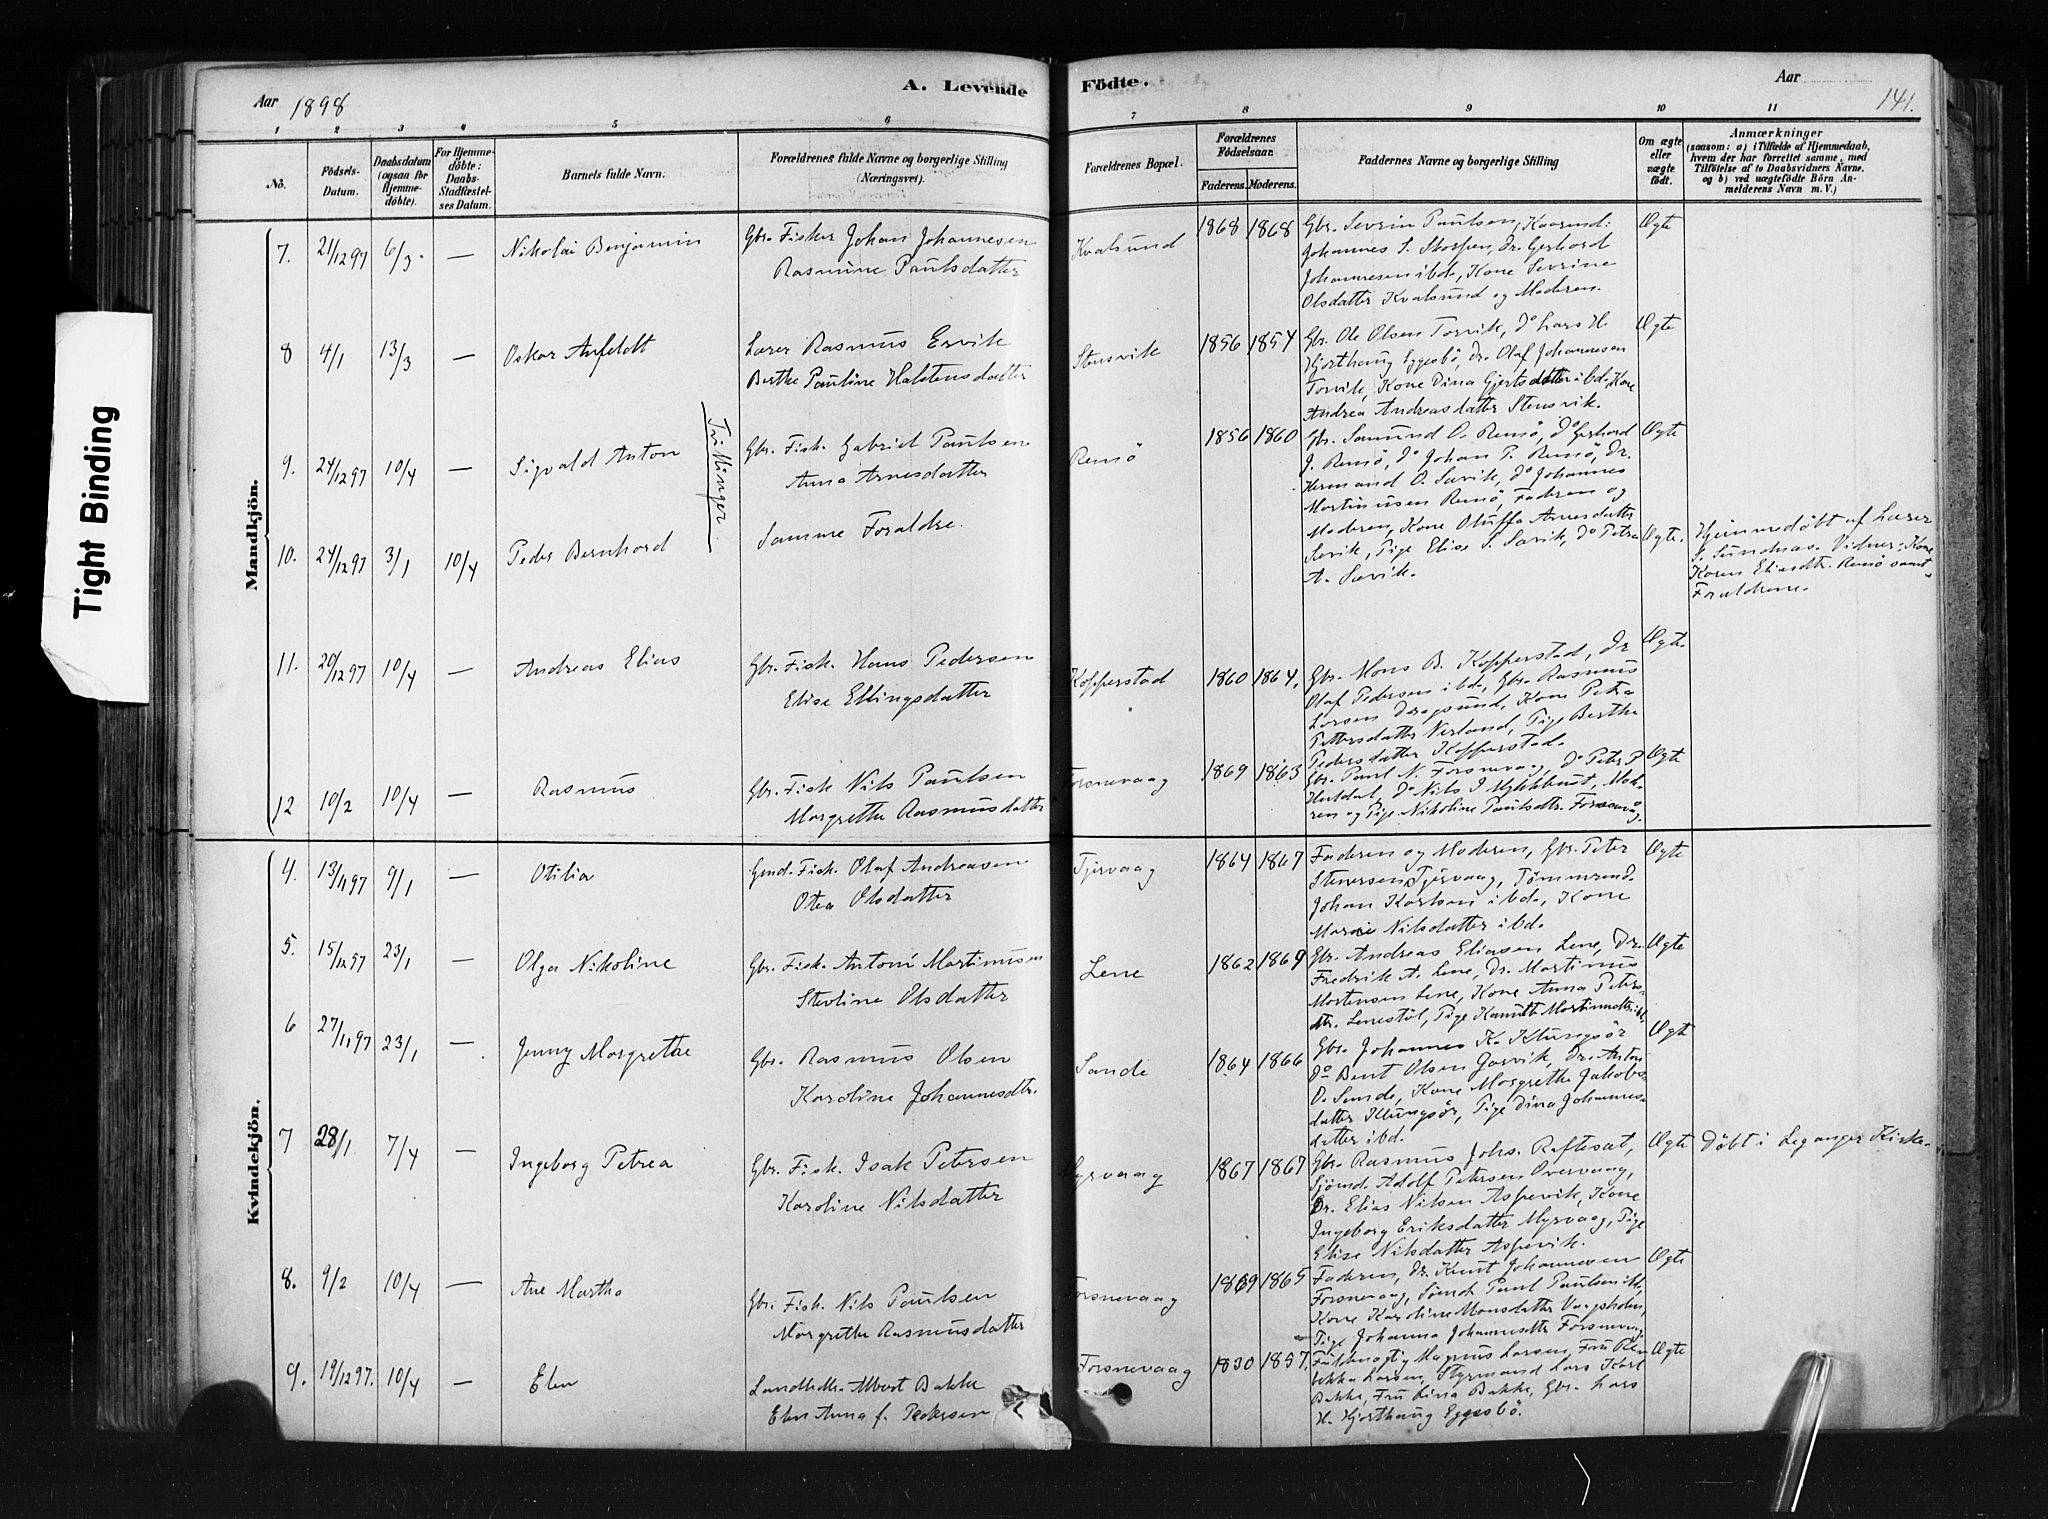 Tight Binding
Aar 1898
A. Levende Födte.
Aar
141.
1 2 3 4 5 6 7 8 9 10 11
No.
Födsels-Datum.
Daabsdatum (ogsaa for Hjemmedöbte).
For Hjemmedöbte: Daabs-Stadfæstelses Datum.
Barnets fulde Navn.
Forældrenes fulde Navne og borgerlige Stilling (Næringsvei).
Forældrenes Bopæl.
Forældrenes Födselsaar.
Faderens. Moderens.
Faddernes Navne og borgerlige Stilling
Om ægte eller uægte födt.
Anmærkninger
(saasom: a) i Tilfælde af Hjemmedaab, hvem der har forrettet samme, med Tilföielse af to Daabsvidners Navne, og b) ved uægtefödte Börn Anmelderens Navn m. V.)
Mandkjön.
7. 21/12 97 6/3. — Nikolai Benjamin
Gbr. Fisker Johan Johannesen
Rasmine Paulsdatter
Kvalsund 1868 1868
Gbr. Sevrin Paulsen, Kvamsd:
Johannes S. Skorpen, Dr. Gerhard
Johannesen ibd, Kone Sevrine
Olsdatter Kvalsund og Moderen.
Ægte
8 4/1 13/3 — Oskar Anfeldt
Lærer Rasmus Ervik
Berthe Pauline Halstensdatter
Stensvik 1856 1854
Gbr. Ole Olsen Torvik, Do Lars H.
Hjorthaug Eggesbö, Dr. Olaf Johannesen
Torvik, Kone Dina Gjertsdatter ibd, Kone
Andrea Andreasdatter Stensvik.
Ægte
9. 24/12 97 10/4 — Sigvald Anton
Tvillinger
Gbr. Fisk. Gabriel Paulsen
Anna Arnesdatter
Remö 1856 1860
Gbr. Samund O. Remö, Do Gerhard
J. Remö, Do Johan P. Remö, Dr.
Hermand O. Sævik, Do Johannes
Martinusen Remö Faderen og
Moderen, Kone Oluffa Arnesdatter
Sævik, Pige Elise S. Sævik, Do Petra
A. Sævik.
Ægte
10. 24/12 97 3/1 10/4 Peder Bernhard
Samme Forældre.
Ægte.
Hjemmedöbt af Lærer
S. Sundnæs. Vidner: Kone
Karen Eliasdtr. Remö samt
Forældrene.
11. 20/12 97 10/4 — Andreas Elias
Gbr. Fisk. Hans Pedersen
Elise Ellingsdatter
Kopperstad 1860 1864.
Gbr. Mons B. Kopperstad, Dr
Olaf Pedersen ibd, Gbr. Rasmus
Larsen Dragsund, Kone Petra
Pettersdatter Nerland, Pige Berthe
Pedersdatter Kopperstad.
Ægte
12 10/2 10/4 — Rasmus
Gbr. Fisk Nils Paulsen
Margrethe Rasmusdatter
Forsnevaag 1869 1863
Gbr. Paul N. Forsnevaag, Do Peter P
Huldal, Do Nils J Myklebust, Mode-
ren og Pige Nikoline Paulsdtr. Forsnevaag.
Ægte
Kvindekjön.
4. 13/11 97 9/1 — Otilia
Gmd. Fisk. Olaf Andreasen
Otea Olsdatter
Tjervaag 1864 1867
Faderen og Moderen, Gbr. Peter
Stenersen Tjervaag, Tömmremd.
Johan Karlsen ibd., Kone
Marie Nilsdatter ibd.
Ægte
5. 15/12 97 23/1 — Olga Nikoline
Gbr. Fisk. Antoni Martinusen
Stevline Olsdatter
Lene 1862 1869
Gbr. Andreas Eliasen Lene, Dr.
Fredrik A. Lene, Dr. Martinus
Mortensen Lene, Kone Anna Peters-
dtr. Lenestöl, Pige Kanutte Martinusdtr ibd.
Ægte
6 27/11 97 23/1 — Jenny Margrethe
Gbr. Rasmus Olsen
Karoline Johannesdtr.
Sande 1864 1866
Gbr. Johannes K. Klungsör
Do Bent Olsen Jarvik, Dr. Anton
O. Sande, Kone Margrethe Jakobs-
datter Klungsör, Pige Dina Johannes-
datter ibd.
Ægte
7 28/1 7/4 — Ingeborg Petrea
Gbr. Fisk. Isak Petersen
Karoline Nilsdatter
Myrvaag 1867 1867
Gbr. Rasmus Johs. Raftesæt,
Sjömd. Adolf Petersen Overvaag,
Dr. Elias Nilsen Aspevik, Kone
Ingeborg Eriksdatter Myrvaag, Pige
Elise Nilsdatter Aspevik.
Ægte
Döbt i Leganger Kirke.
8. 9/2 10/4 — Ane Martha
Gbr. Fisk. Nils Paulsen
Margrethe Rasmusdatter
Forsnevaag 1869 1865
Faderen, Dr. Knut Johannesen
Forsnevaag, Sömd Paul Paulsen ibd,
Kone Karoline Monsdatter Vaagsholm,
Pige Johanna Johannesdtr Forsnevaag
Ægte
9. 19/12 97. 10/4 — Elen
Landhdlr. Albert Bakke
Elen Anna f. Pedersen
Forsnevaag 1830 1857.
Fuldmægtig Magnus Larsen, Fru Re-
bekka Larsen, Styrmand Lars Karl
Bakke, Fru Lina Bakke, Gbr. Lars
H. Hjorthaug Eggesbö.
Ægte